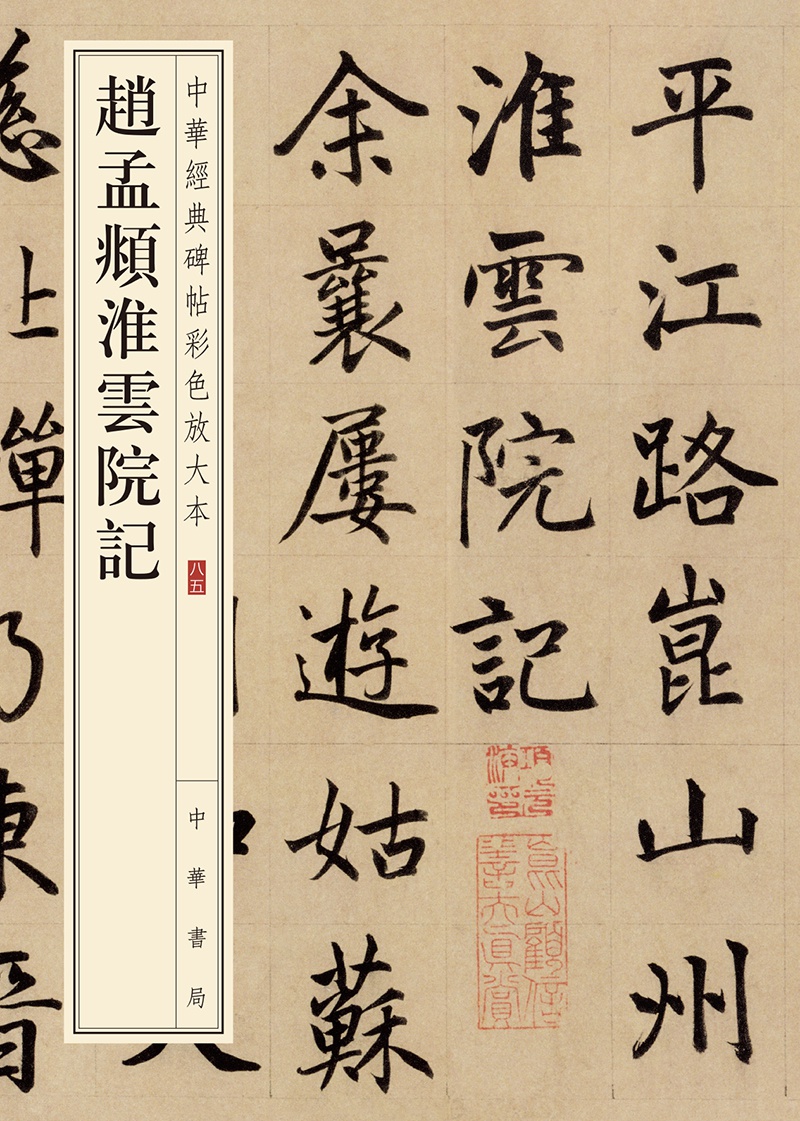 平江路崑山州
淮雲院記
余曩屢遊姑蘇
中華經典碑帖彩色放大本
八五
中華書局
趙孟頫淮雲院記
上
乃東晉